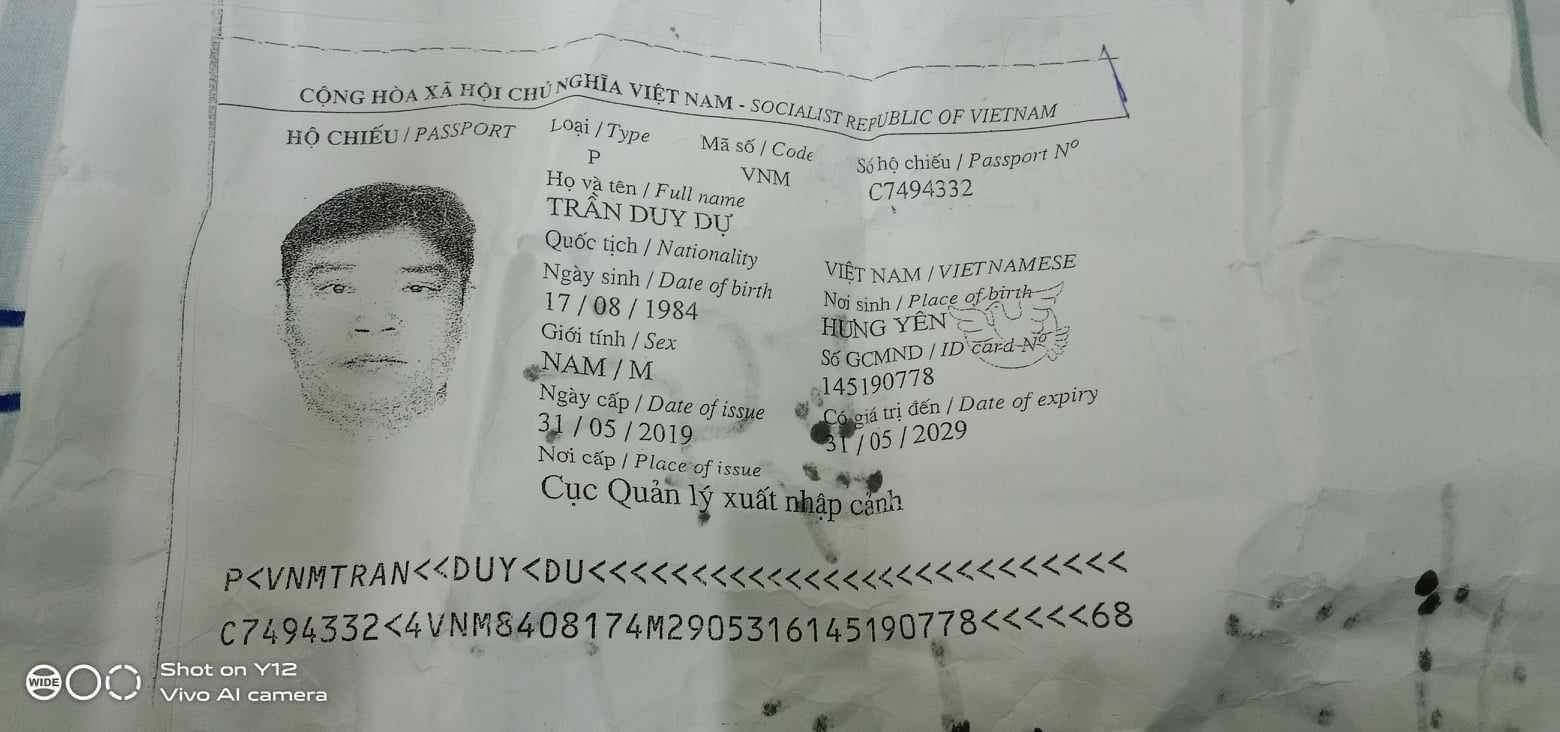 CỘNG HÒA XÃ HỘI CHỦ NGHĨA VIỆT NAM - SOCIALIST REPUBLIC OF VIETNAM
HỘ CHIẾU / PASSPORT
Loại / Type
P
Mã số / Code
VNM
Số hộ chiếu / Passport Nº
C7494332
Họ và tên / Full name
TRẦN DUY DỰ
Quốc tịch / Nationality
VIỆT NAM / VIETNAMESE
Ngày sinh / Date of birth
17 / 08 / 1984
Nơi sinh / Place of birth
HƯNG YÊN
Giới tính / Sex
NAM / M
Số GCMND / ID card Nº
145190778
Ngày cấp / Date of issue
31 / 05 / 2019
Có giá trị đến / Date of expiry
31 / 05 / 2029
Nơi cấp / Place of issue
Cục Quản lý xuất nhập cảnh
P<VNMTRAN<<DUY<DU<<<<<<<<<<<<<<<<<<<<<<<<<<<
C7494332<4VNM8408174M2905316145190778<<<<<68
WIDE
Shot on Y12
Vivo AI camera